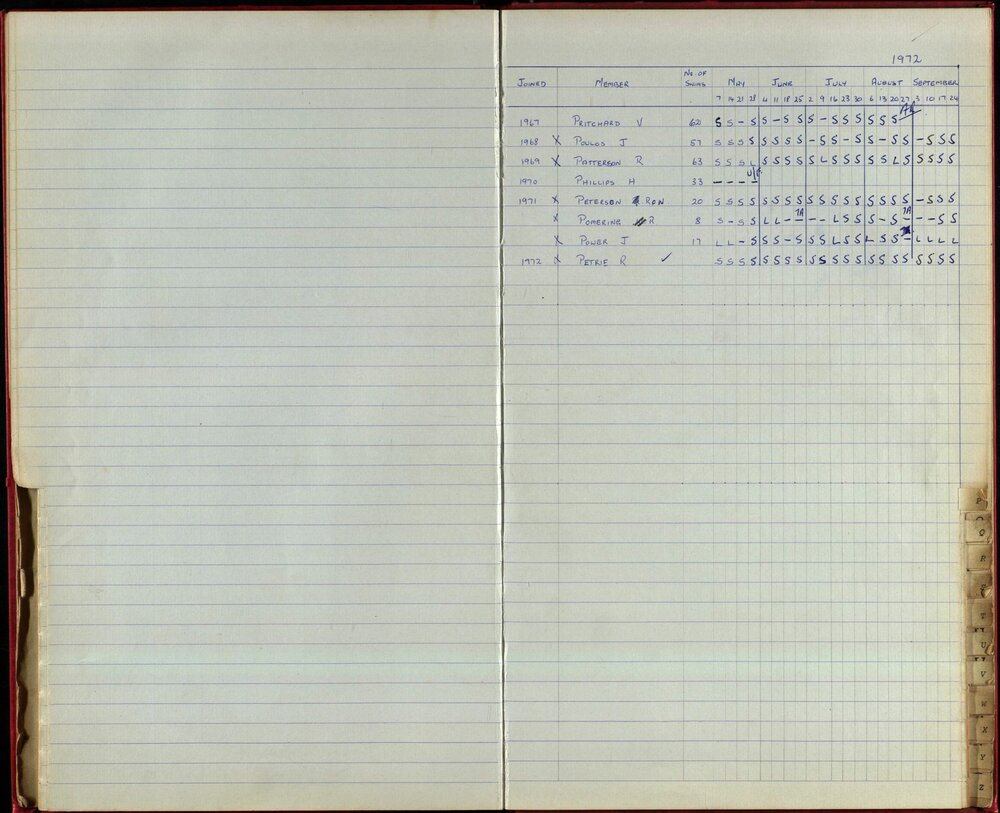 1972
JOINED MEMBER NO OF SWIMS MAY JUNE JULY AUGUST SEPTEMBER
7 14 21 28 4 11 18 25 2 9 16 23 30 6 13 20 27 3 10 17 24
1967 PRITCHARD V 62 S S - S S - S S S - S S S S S S
1968 X POULOS J 57 S S S S S S S S - S - S - S - S S - S S S
1969 X PATTERSON R 63 S S S L S S S S S L S S S S S L S S S S S
1970 PHILLIPS H 33 - - - -
1971 X PETERSON RON 20 S S S S S S S S S S S S S S S S S - S S S
X POMERING R 8 S - S S L L - - - - L S S S - S - - - S S
X POWER J 17 L L - S S S - S S S L S S L S S - L L L L
1972 X PETRIE R ✓ S S S S S S S S S S S S S S S S S S S S S
P
Q
R
T
U
V
W
X
Y
Z